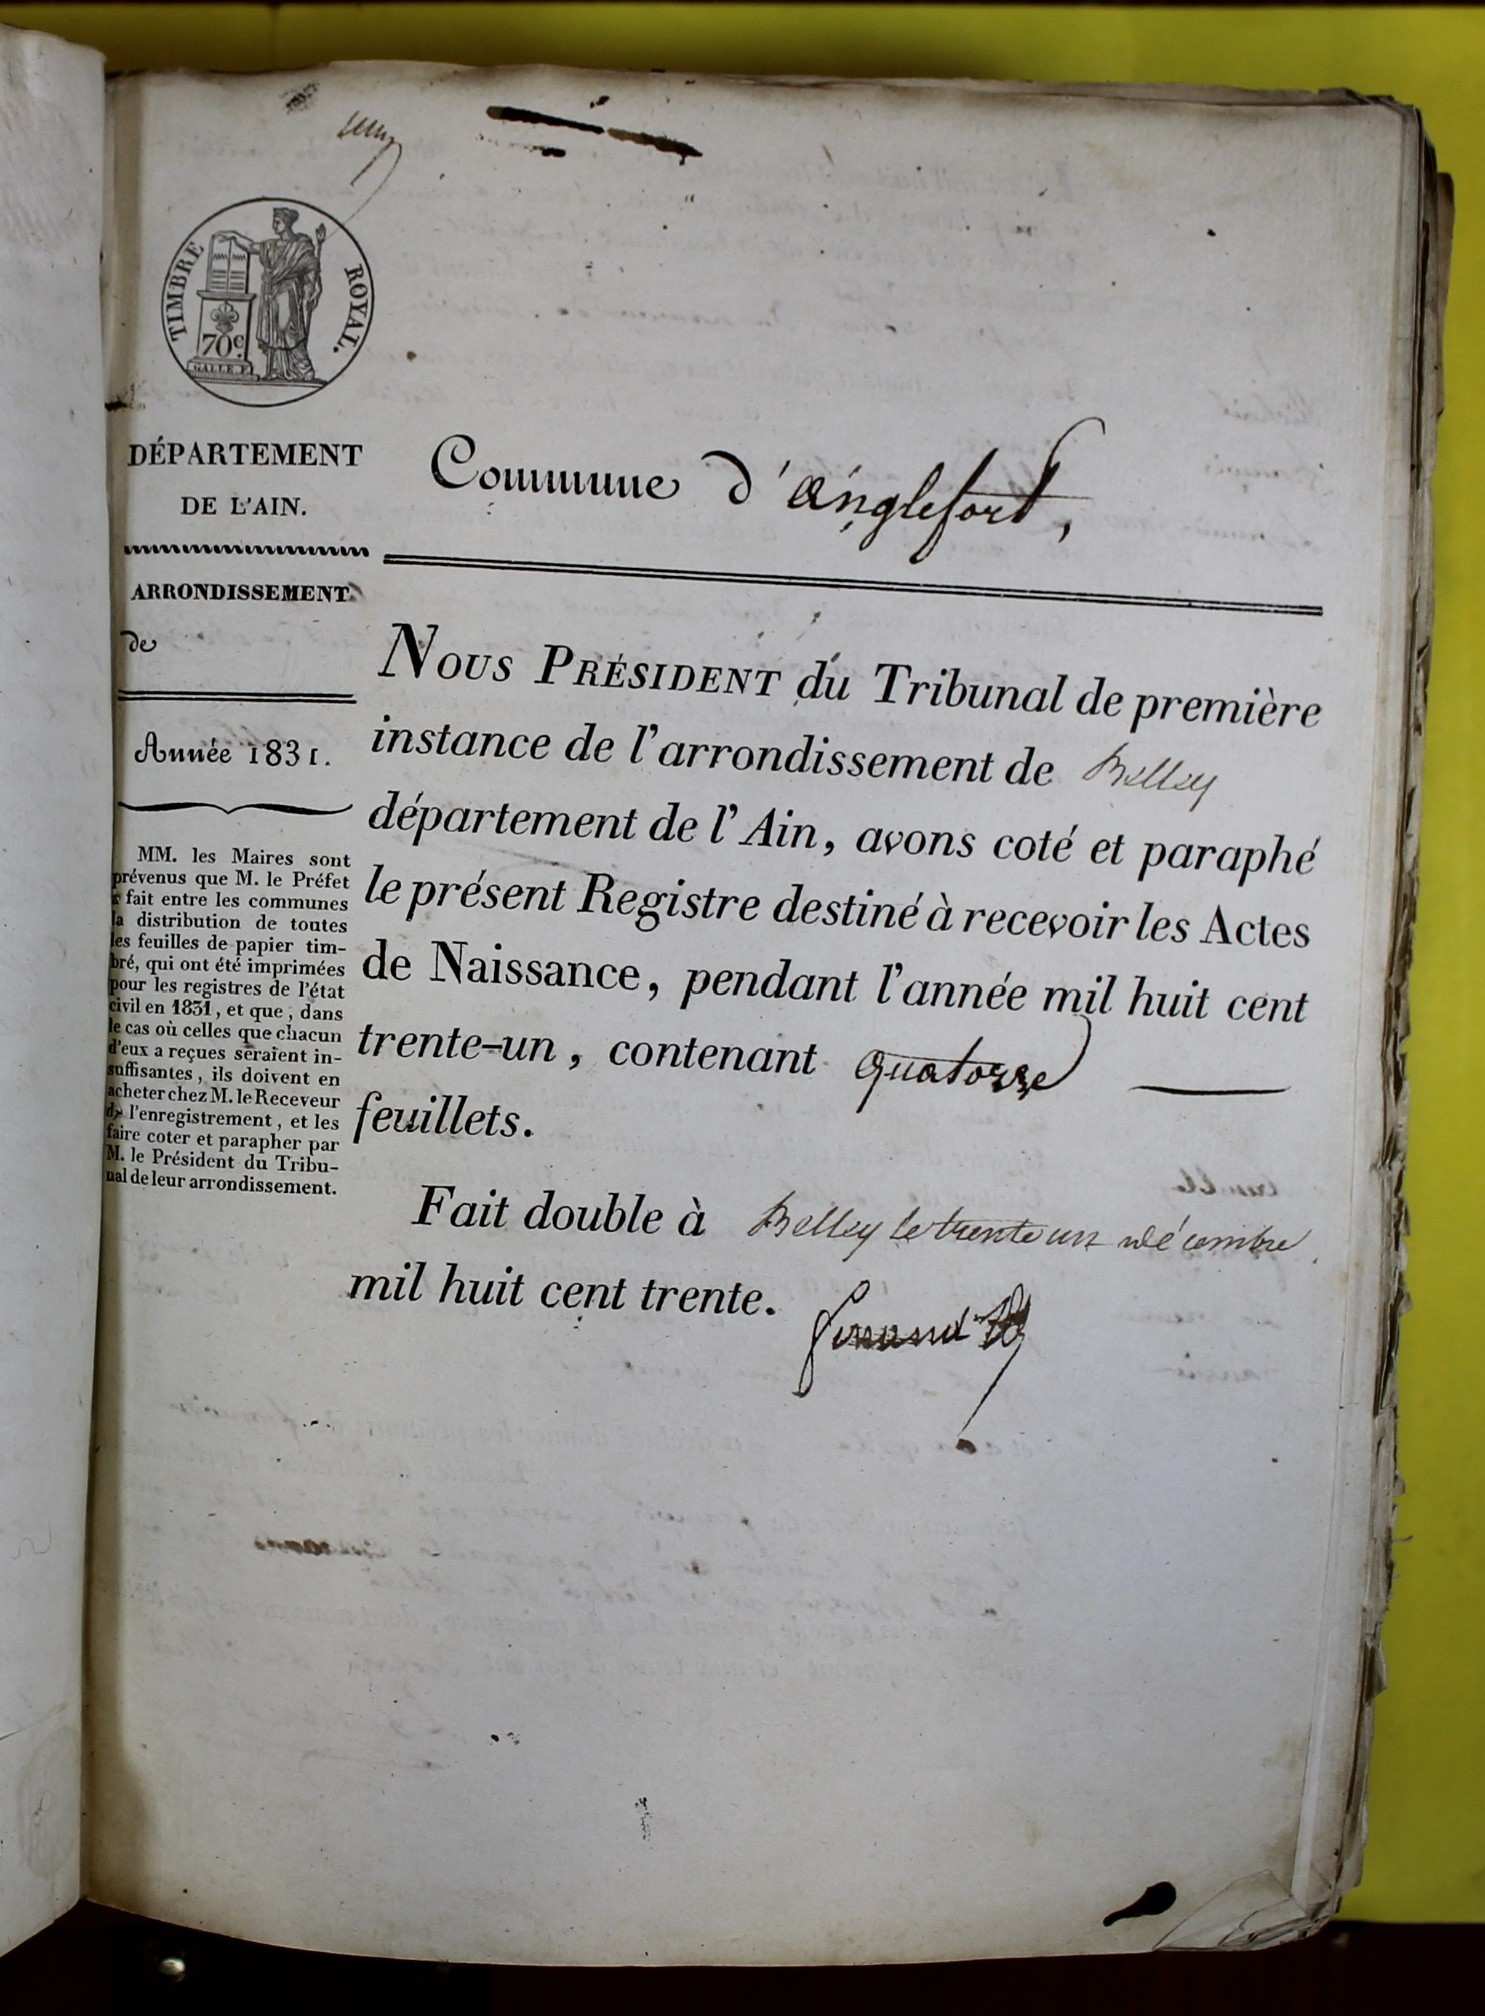 TIMBRE ROYAL.
70c.
GALLE F.
DÉPARTEMENT
DE L'AIN.
ARRONDISSEMENT
de
Année 1831.
MM. les Maires sont
prévenus que M. le Préfet
a fait entre les communes
la distribution de toutes
les feuilles de papier tim-
bré, qui ont été imprimées
pour les registres de l'état
civil en 1831, et que, dans
le cas où celles que chacun
d'eux a reçues seraient in-
suffisantes, ils doivent en
acheter chez M. le Receveur
de l'enregistrement, et les
faire coter et parapher par
M. le Président du Tribu-
nal de leur arrondissement.
Commune d'anglefort,
NOUS PRÉSIDENT du Tribunal de première
instance de l'arrondissement de Belley
département de l'Ain, avons coté et paraphé
le présent Registre destiné à recevoir les Actes
de Naissance, pendant l'année mil huit cent
trente-un, contenant quatorze
feuillets.
Fait double à Belley le trente un décembre
mil huit cent trente.